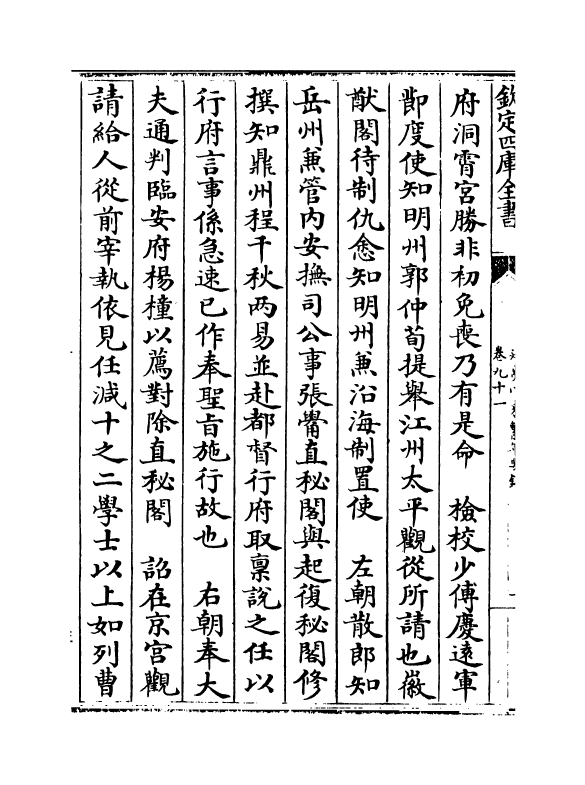 欽定四庫全書
卷九十一
府洞霄宫勝非初免喪乃有是命　檢校少傅慶逺軍
節度使知明州郭仲荀提舉江州太平觀從所請也徽
猷閣待制仇悆知明州兼沿海制置使　左朝散郎知
岳州兼管内安撫司公事張觷直秘閣與起復秘閣修
撰知鼎州程千秋两易並赴都督行府取禀説之任以
行府言事係急速已作奉聖旨施行故也　右朝奉大
夫通判臨安府楊橦以薦對除直秘閣　詔在京宫觀
請給人從前宰執依見任減十之二學士以上如列曹